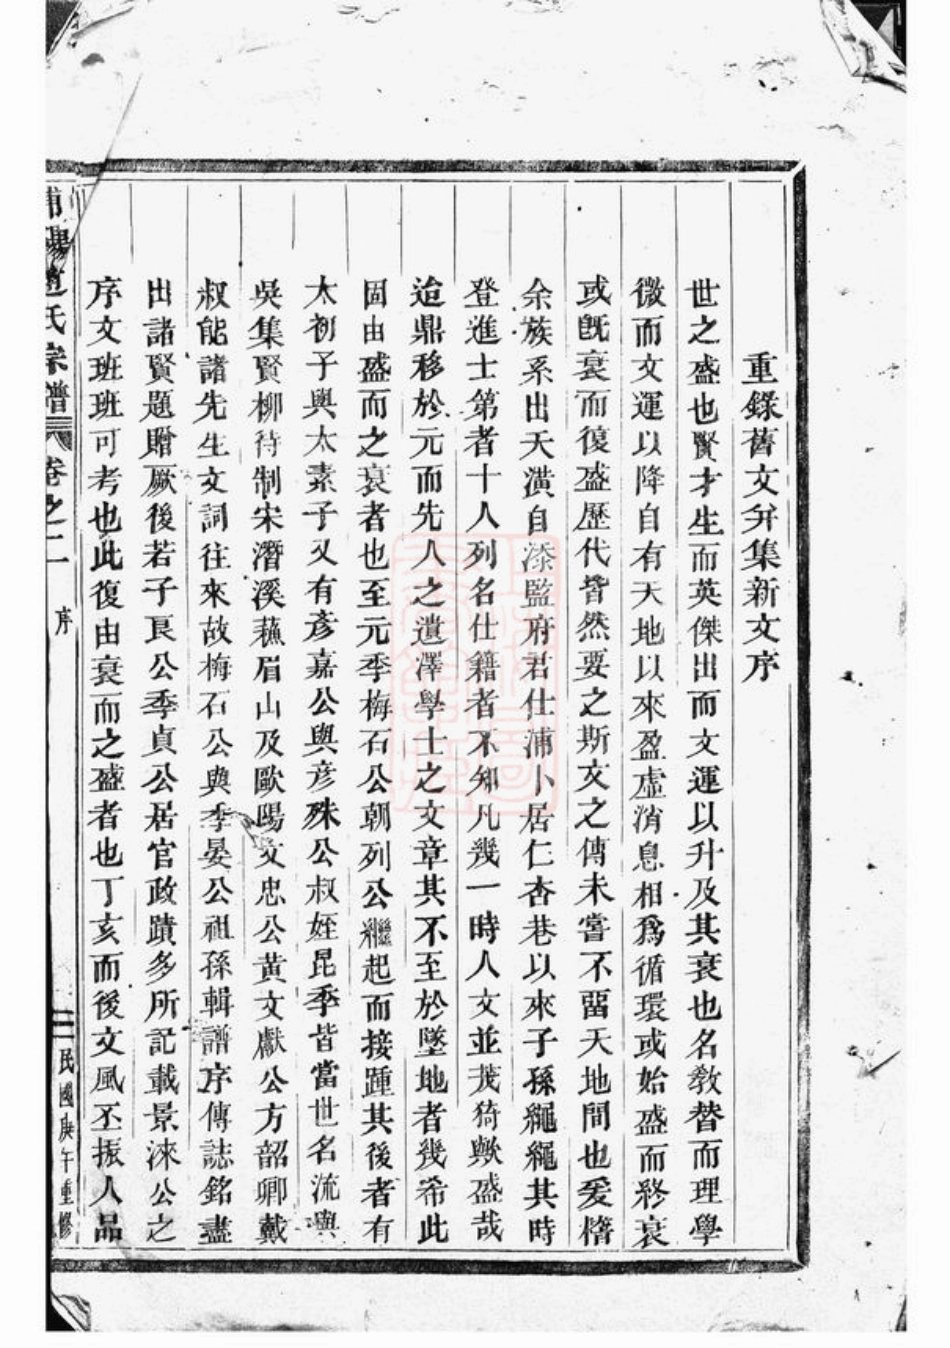 重錄舊文弁集新文序
世之盛也賢才生而英傑出而文運以升及其衰也名教替而理學
微而文運以降自有天地以來盈虛消息相為循環或始盛而終衰
或旣衰而復盛歷代皆然要之斯文之傳未嘗不畱天地間也爰稽
余族系出天潢自添監府君仕浦卜居仁杏巷以來子孫繩繩其時
登進士第者十人列名仕籍者不知凡幾一時人文並茂猗歟盛哉
迨鼎移於元而先人之遺澤學士之文章其不至於墜地者幾希此
固由盛而之衰者也至元季梅石公朝列公繼起而接踵其後者有
太初子與太素子又有彥嘉公與彥殊公叔姪昆季皆當世名流與
吳集賢柳待制宋潛溪蘇眉山及歐陽文忠公黃文獻公方韶卿戴
叔能諸先生文詞往來故梅石公與季晏公祖孫輯譜序傳誌銘盡
出諸賢題贈厥後若子良公季貞公居官政蹟多所記載景淶公之
序文班班可考也此復由衰而之盛者也丁亥而後文風丕振人品
浦陽趙氏宗譜 卷之二 序 三 民國庚午重修